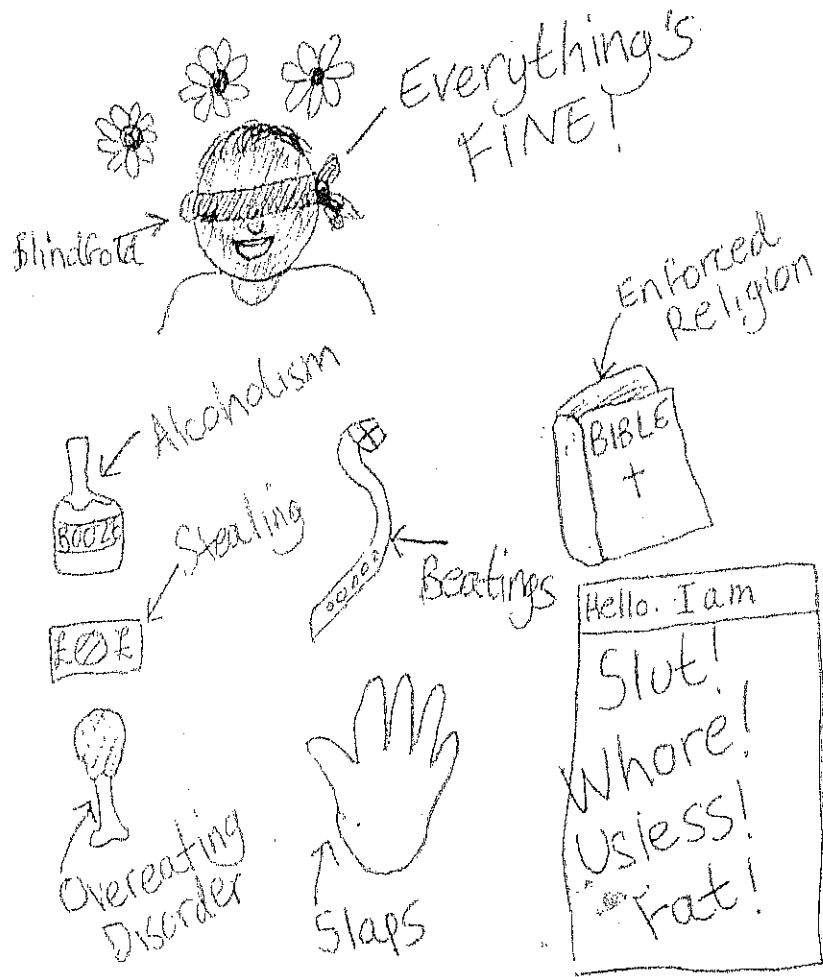 Everything's
FINE!
Blindfold
Enforced
Religion
Alcoholism
BIBLE
BOOZE
Stealing
Beatings
£ £
Hello. I am
Slut!
Whore!
Usless!
Fat!
Overeating
Disorder
Slaps